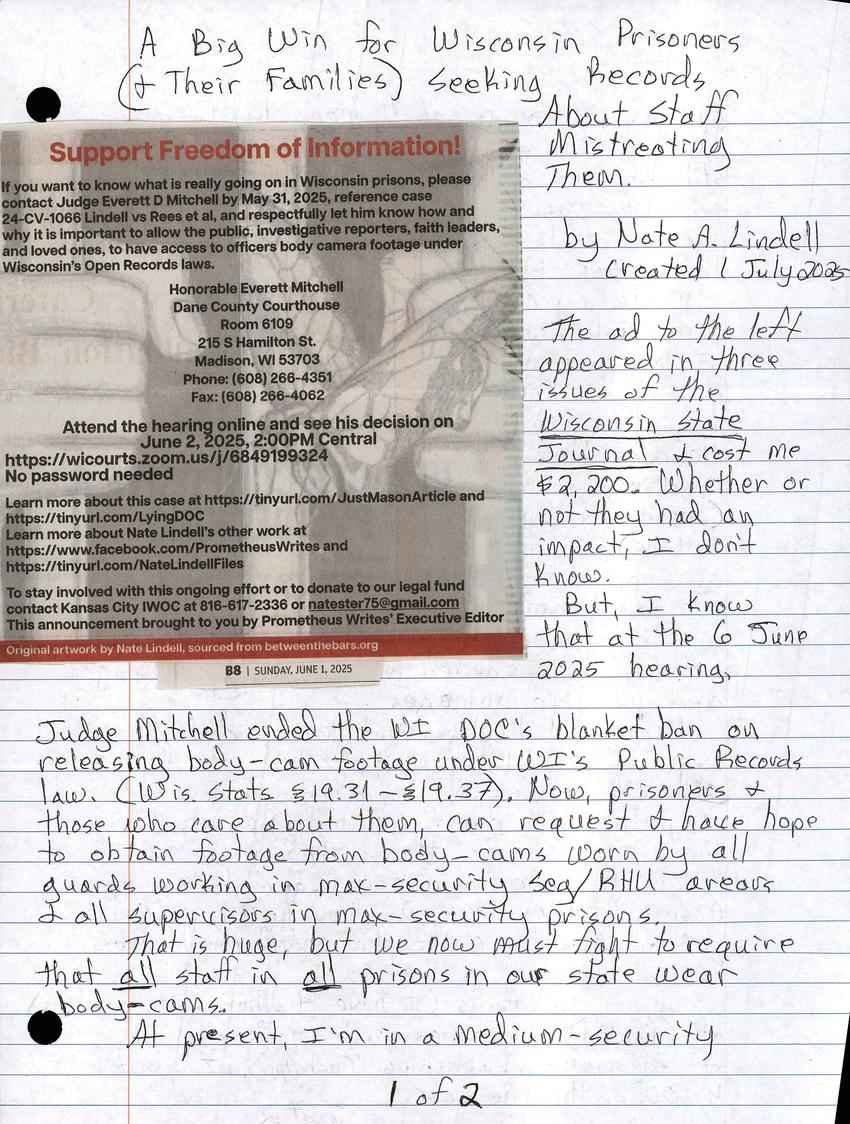 A Big Win for Wisconsin Prisoners
(& Their Families) Seeking Records
About Staff
Mistreating
Them.
by Nate A. Lindell
Created 1 July 2025
Support Freedom of Information!
If you want to know what is really going on in Wisconsin prisons, please
contact Judge Everett D Mitchell by May 31, 2025, reference case
24-CV-1066 Lindell vs Rees et al, and respectfully let him know how and
why it is important to allow the public, investigative reporters, faith leaders,
and loved ones, to have access to officers body camera footage under
Wisconsin's Open Records laws.
Honorable Everett Mitchell
Dane County Courthouse
Room 6109
215 S Hamilton St.
Madison, WI 53703
Phone: (608) 266-4351
Fax: (608) 266-4062
Attend the hearing online and see his decision on
June 2, 2025, 2:00PM Central
https://wicourts.zoom.us/j/6849199324
No password needed
Learn more about this case at https://tinyurl.com/JustMasonArticle and
https://tinyurl.com/LyingDOC
Learn more about Nate Lindell's other work at
https://www.facebook.com/PrometheusWrites and
https://tinyurl.com/NateLindellFiles
To stay involved with this ongoing effort or to donate to our legal fund
contact Kansas City IWOC at 816-617-2336 or natester75@gmail.com
This announcement brought to you by Prometheus Writes' Executive Editor
Original artwork by Nate Lindell, sourced from betweenthebars.org
B8 | SUNDAY, JUNE 1, 2025
The ad to the left
appeared in three
issues of the
Wisconsin State
Journal & cost me
$2,200. Whether or
not they had an
impact, I don't
know.
But, I know
that at the 6 June
2025 hearing,
Judge Mitchell ended the WI DOC's blanket ban on
releasing body-cam footage under WI's Public Records
law. (Wis. Stats §19.31-§19.37). Now, prisoners &
those who care about them, can request & have hope
to obtain footage from body-cams worn by all
guards working in max-security Seg/RHU arears
& all supervisors in max-security prisons.
That is huge, but we now must fight to require
that all staff in all prisons in our state wear
body-cams.
At present, I'm in a medium-security
1 of 2